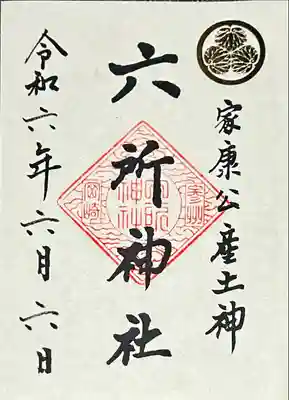 家康公産土神
六所神社
令和六年六月六日
参州
六所
神社
岡崎